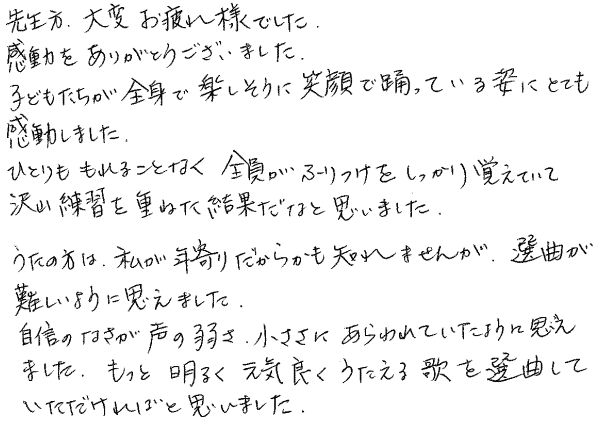 先生方、大変お疲れ様でした。
感動をありがとうございました。
子どもたちが全身で楽しそうに笑顔で踊っている姿にとても
感動しました。
ひとりももれることなく全員がふりつけをしっかり覚えていて
沢山練習を重ねた結果だなと思いました。
うたの方は、私が年寄りだからかも知れませんが、選曲が
難しいように思えました。
自信のなさが声の弱さ、小ささにあらわれていたように思え
ました。もっと明るく元気良くうたえる歌を選曲して
いただければと思いました。